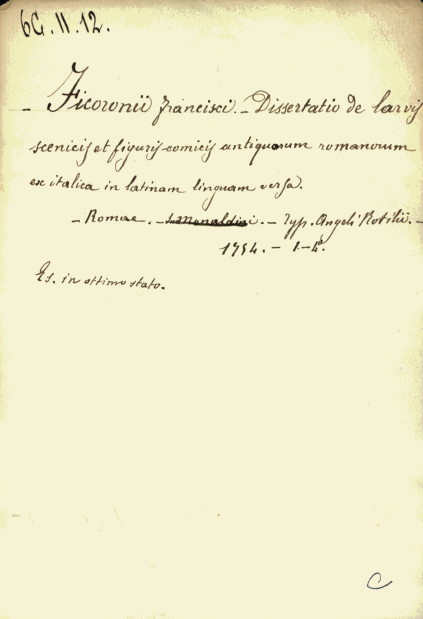 6G.11.12.
– Ficoronii francisci. – Dissertatio de larvis
scenicis et figuris comicis antiquorum romanorum
ex italica in latinam linguam versa.
– Romae. – – Typ. Angeli Rotilii. –
1754. – 1. – 4°.
Es. in ottimo stato.
C